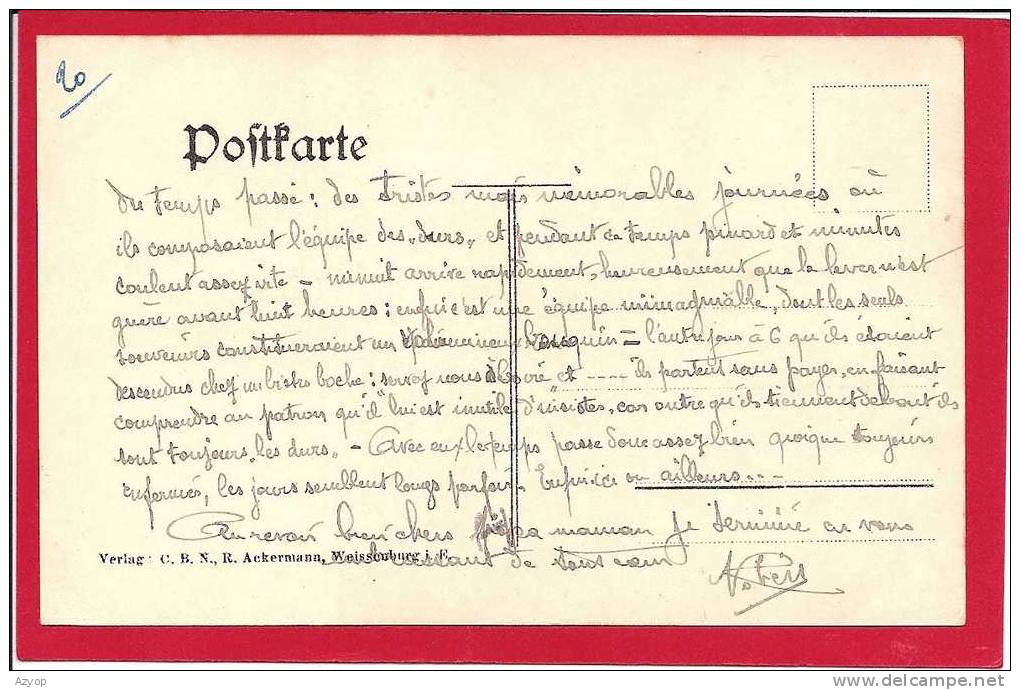 20
Postkarte
du temps passé : des tristes mais mémorables journées où
ils composaient l'équipe des „durs" et pendant ce temps pinard et minutes
coulent assez vite – minuit arrive rapidement, heureusement que le lever n'est
guère avant huit heures : enfin c'est une équipe inimaginable, dont les seuls
souvenirs constitueraient un bouquin = l'autre jour à 6 qu'ils étaient
descendus chez un bistro boche : servez nous à boire et ---- ils partent sans payer, en faisant
comprendre au patron qu'il lui est inutile d'insister, car outre qu'ils tiennent debout ils
sont toujours „les durs" – Avec eux le temps passe donc assez bien quoique toujours
enfermés, les jours semblent longs parfois. Enfin ici ou ailleurs ...
Au revoir bien chers papa maman je termine en vous
Verlag : C. B. N., R. Ackermann, Weissenburg i. E.
embrassant de tout cœur
Azyop
delcampe.net